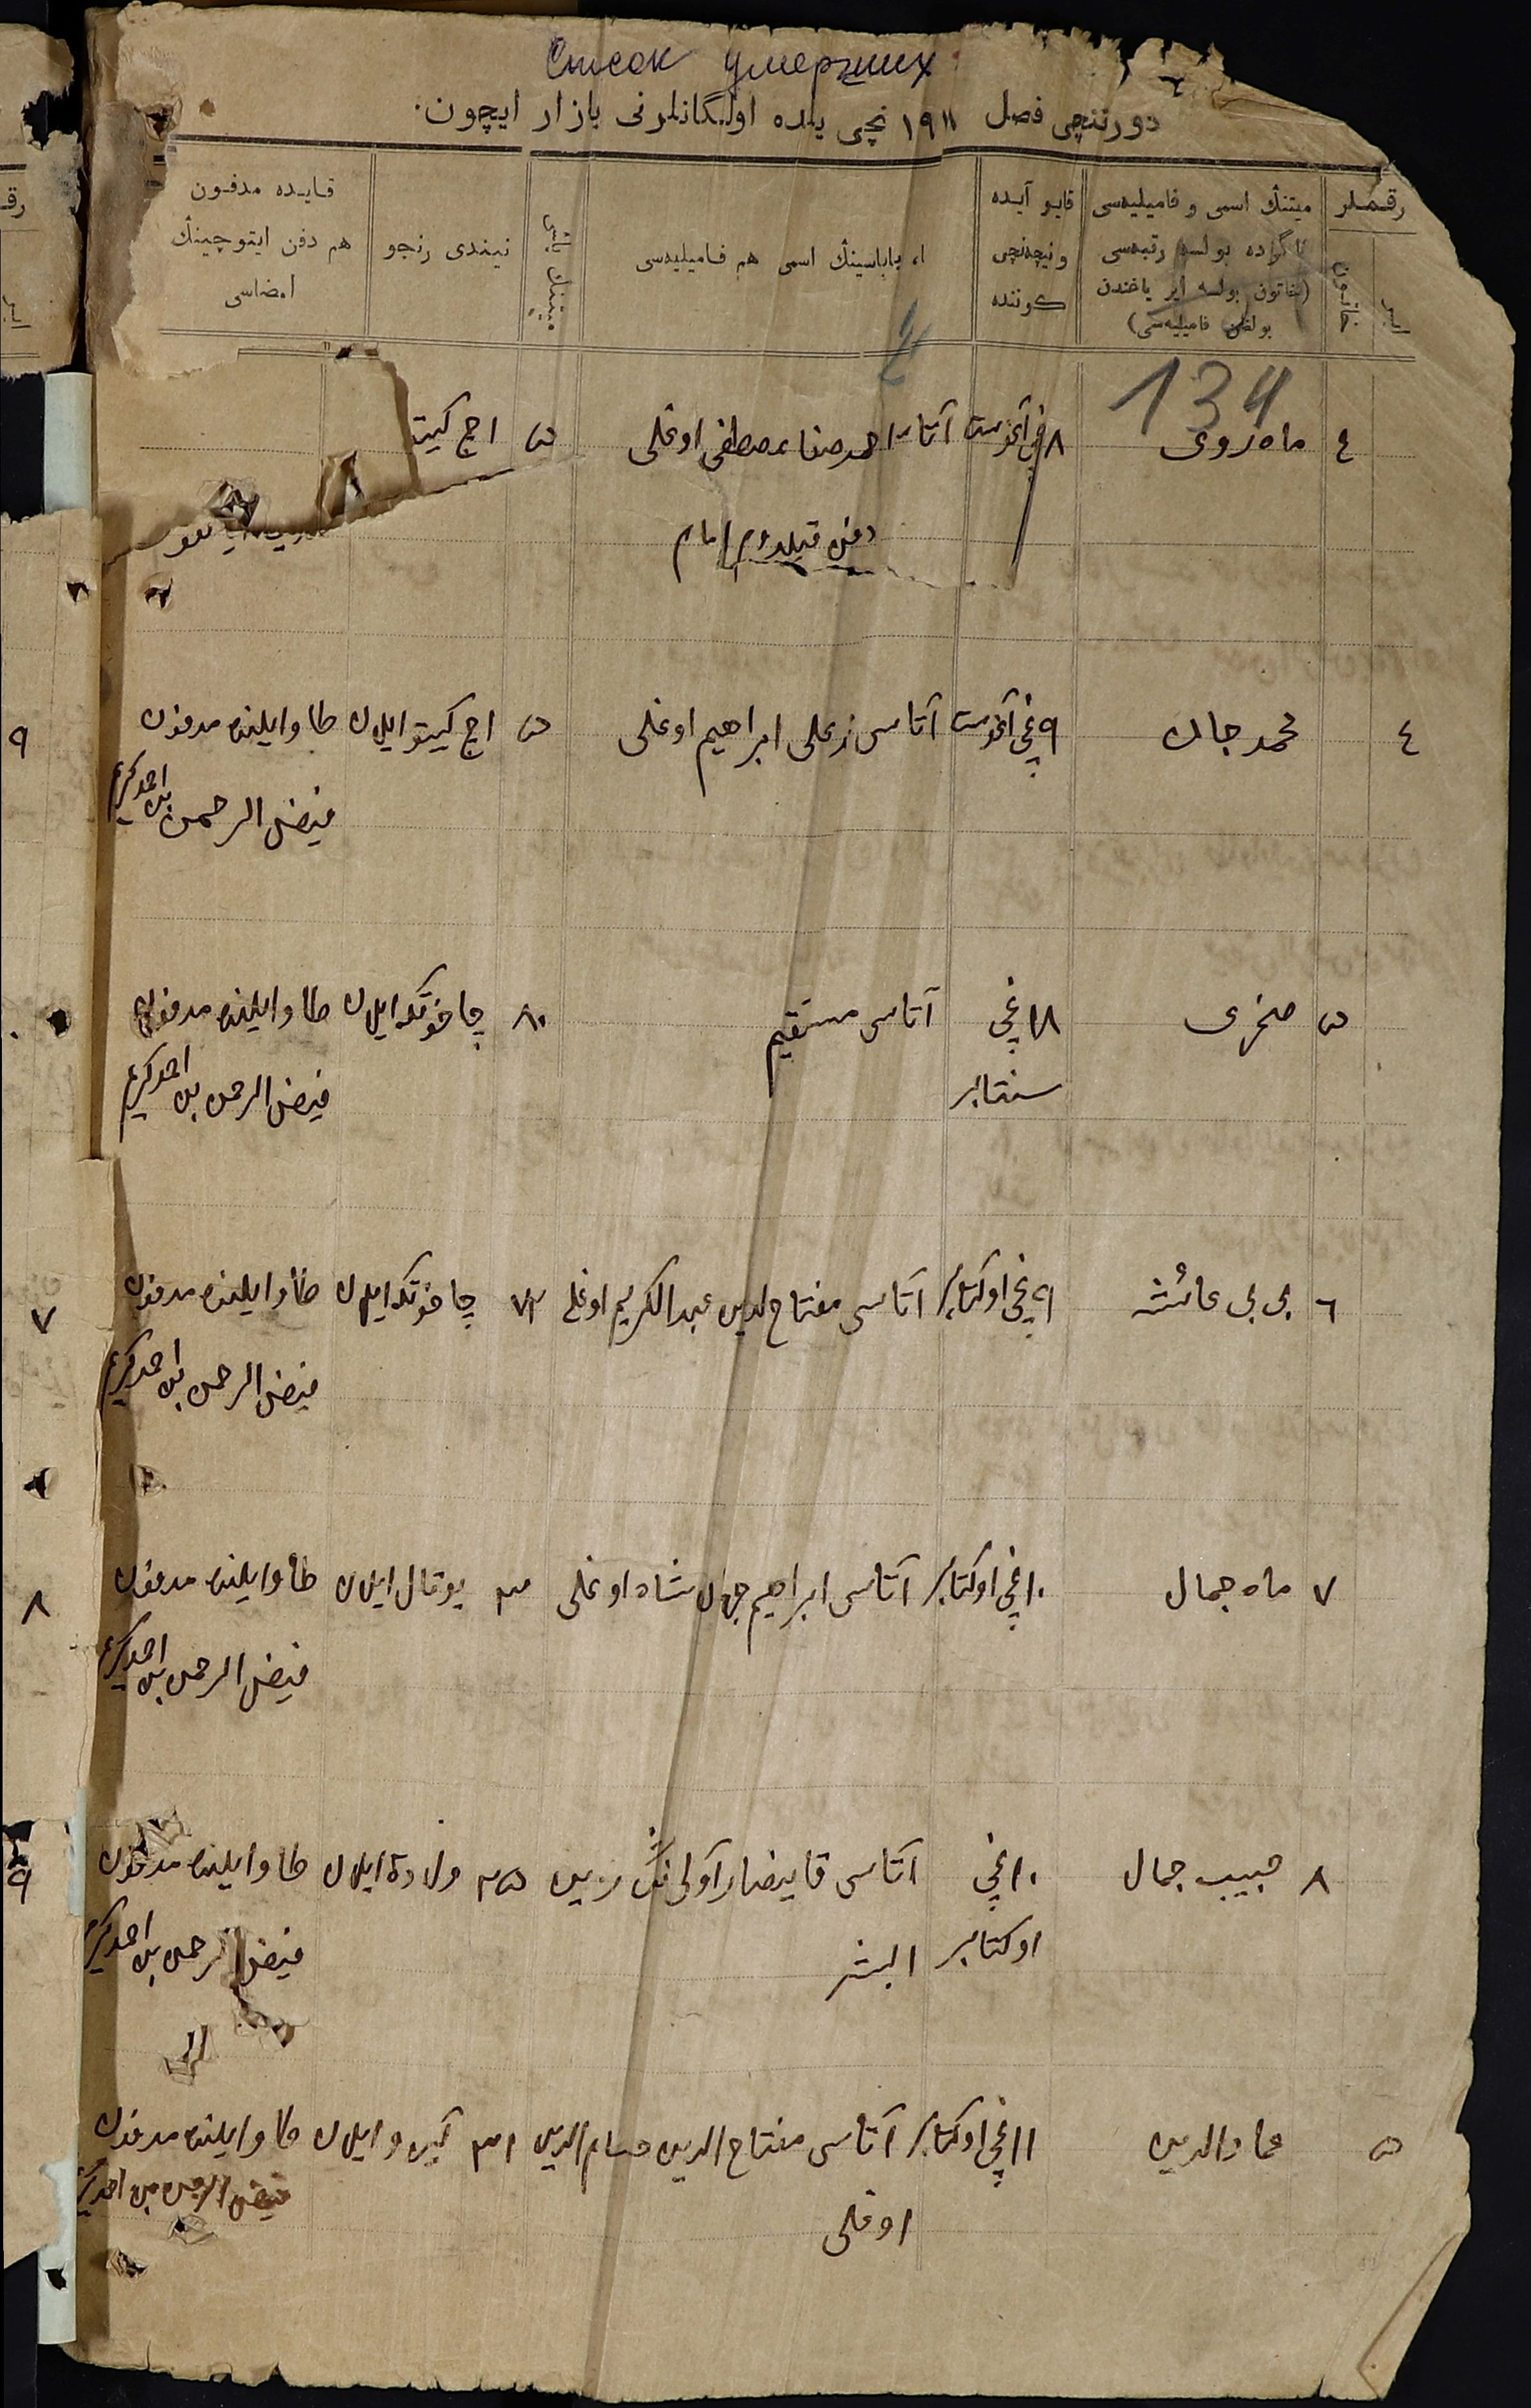 Список умерших
دورتنچی فصل ۱۹۱۱ نچی یلده اولگانلرنی یازار ایچون.
رقملر
خاتون
ایر
میتنڭ اسمی و فامیلیه‌سی
اگرده بولسه رتبه‌سی
(خاتون بولسه ایر یاغندن
بولغان فامیلیه‌سی)
قایو آیده
و نیچه‌نچی
کوننده
آتا، باباسینڭ اسمی هم فامیلیه‌سی
میتنڭ یاشی
نیندی رنجو
قایده مدفون
هم دفن ایتوچینڭ
امضاسی
134
٤ ماه‌روی ۸نچی آغوست آتاسی احمدصفا مصطفی اوغلی ۵ اچ کیتو
دفن قیلدم امام
٤ محمد جان ۹نچی آغوست آتاسی ابراهیم اوغلی ۵ اچ کیتو ایلان طاو ایلنده مدفون
فیض الرحمن بن احمدکریم
۵ صخری ۱۸نچی آتاسی مستقیم ۸۰ چاخوتکه ایلان طاو ایلنده مدفون
سنتابر فیض الرحمن بن احمدکریم
٦ بی بی عائشه ۹نچی اوکتابر آتاسی مفتاح الدین عبدالکریم اوغلی ۷۳ چاخوتکه ایلان طاو ایلنده مدفون
فیض الرحمن بن احمدکریم
۷ ماه جمال ۱۰نچی اوکتابر آتاسی ابراهیم جهان شاه اوغلی ۳ یوتال ایلان طاو ایلنده مدفون
فیض الرحمن بن احمدکریم
۸ حبیب جمال ۱۰نچی آتاسی آولی‌نڭ زین ۳۵ ولادة ایلان طاو ایلنده مدفون
اوکتابر البشر فیض الرحمن بن احمدکریم
۵ عماد الدین ۱۱نچی اوکتابر آتاسی مفتاح الدین حسام الدین ۳۱ ایلان طاو ایلنده مدفون
اوغلی فیض الرحمن بن احمدکریم
۹
۷
۸
۹